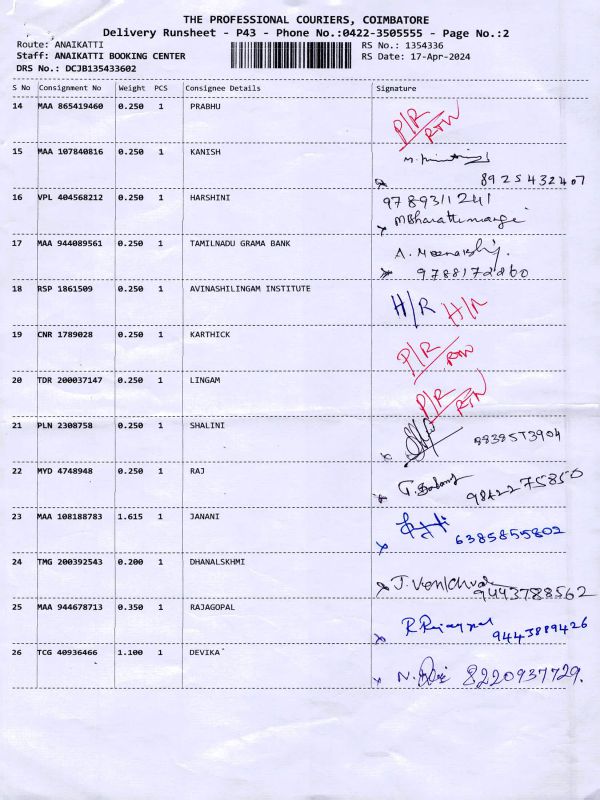 THE PROFESSIONAL COURIERS, COIMBATORE
Delivery Runsheet - P43 - Phone No.:0422-3505555 - Page No.:2
Route: ANAIKATTI RS No.: 1354336
Staff: ANAIKATTI BOOKING CENTER RS Date: 17-Apr-2024
DRS No.: DCJB135433602
S No Consignment No Weight PCS Consignee Details Signature
14 MAA 865419460 0.250 1 PRABHU
P/R
RTN
15 MAA 107840816 0.250 1 KANISH
8925432407
16 VPL 404568212 0.250 1 HARSHINI 9789311241
17 MAA 944089561 0.250 1 TAMILNADU GRAMA BANK
A. Meenakshi
9788172860
18 RSP 1861509 0.250 1 AVINASHILINGAM INSTITUTE
H/R H/R
19 CNR 1789028 0.250 1 KARTHICK
P/R
RTN
20 TDR 200037147 0.250 1 LINGAM
P/R
RTN
21 PLN 2308758 0.250 1 SHALINI
22 MYD 4748948 0.250 1 RAJ
9842275850
23 MAA 108188783 1.615 1 JANANI
6385855802
24 TMG 200392543 0.200 1 DHANALSKHMI
9443788562
25 MAA 944678713 0.350 1 RAJAGOPAL
R Rajagopal
9443889426
26 TCG 40936466 1.100 1 DEVIKA
8220937729.